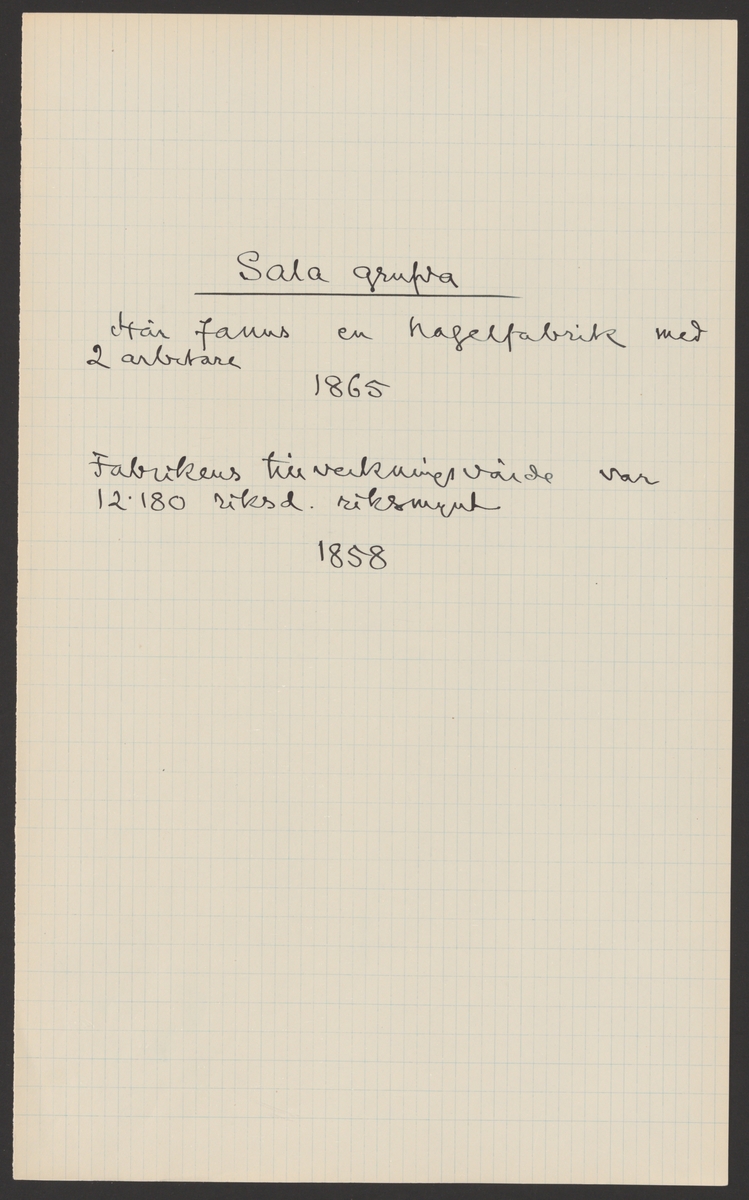 Sala grufva
Här fanns en hagelfabrik med
2 arbetare
1865
Fabrikens tillverkningsvärde var
12.180 riksd. riksmynt
1858